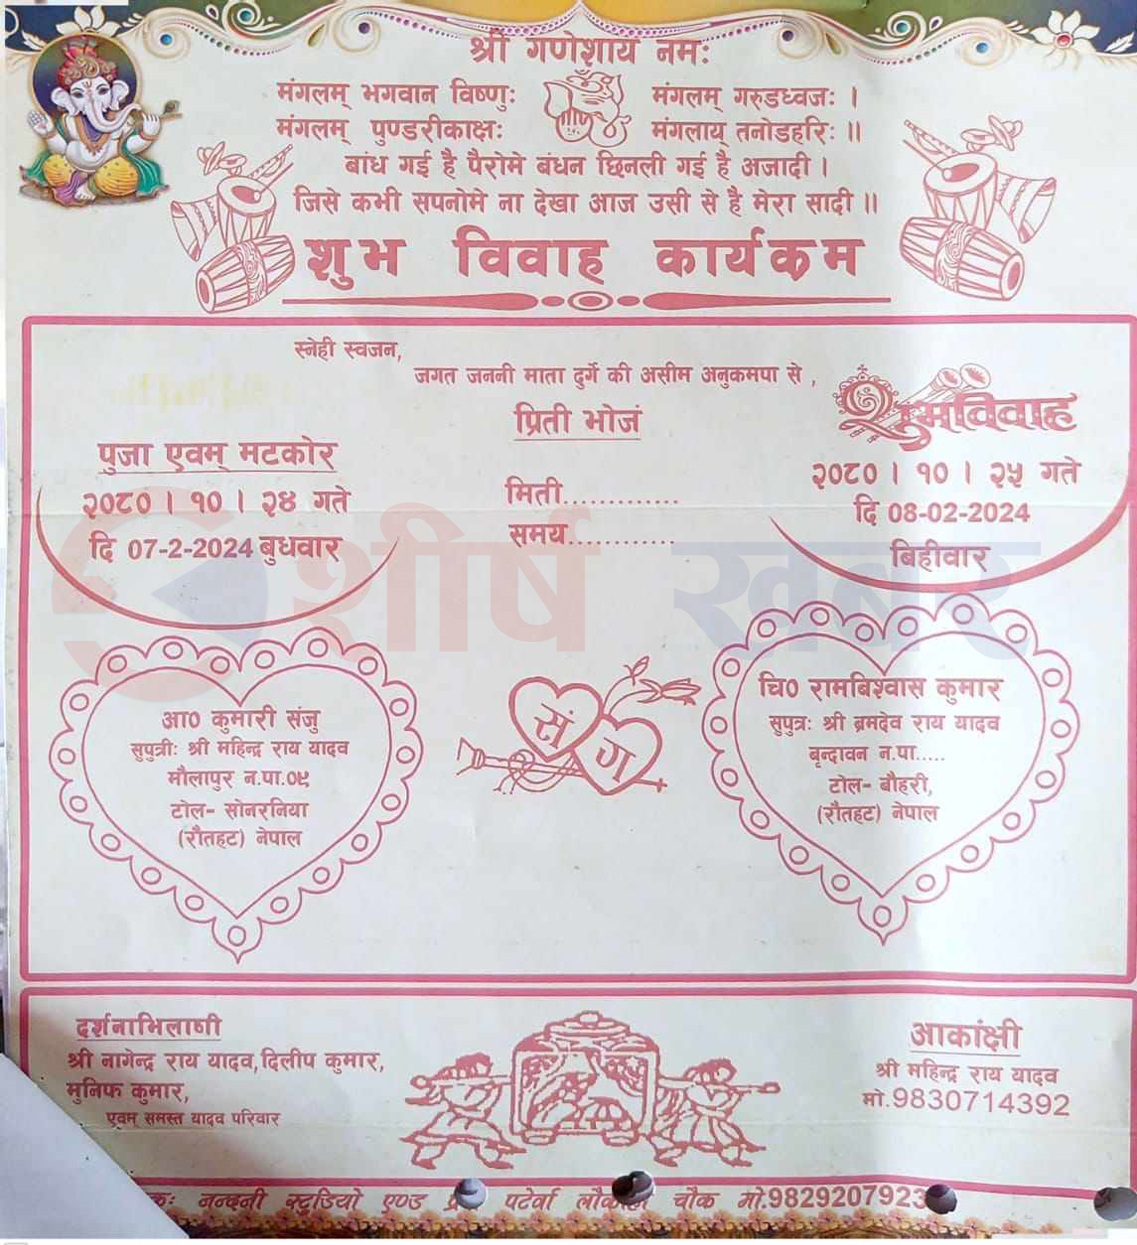 श्री गणेशाय नमः
मंगलम् भगवान विष्णुः मंगलम् गरुडध्वजः ।
मंगलम् पुण्डरीकाक्षः मंगलाय् तनोडहरिः ॥
बांध गई है पैरोमे बंधन छिनली गई है अजादी ।
जिसे कभी सपनोमे ना देखा आज उसी से है मेरा सादी ॥
शुभ विवाह कार्यक्रम
स्नेही स्वजन,
जगत जननी माता दुर्गे की असीम अनुकमपा से ,
प्रिती भोजं
मिती............
समय............
पुजा एवम् मटकोर
२०८० । १० । २४ गते
दि 07-2-2024 बुधवार
शुभविवाह
२०८० । १० । २५ गते
दि 08-02-2024
बिहीवार
शीर्ष खबर
आ० कुमारी संजु
सुपुत्रीः श्री महिन्द्र राय यादव
मौलापुर न.पा.०९
टोल- सोनरनिया
(रौतहट) नेपाल
सं
ग
चि० रामबिश्वास कुमार
सुपुत्रः श्री ब्रमदेव राय यादव
बृन्दावन न.पा.....
टोल- बौहरी,
(रौतहट) नेपाल
दर्शनाभिलाषी
श्री नागेन्द्र राय यादव,दिलीप कुमार,
मुनिफ कुमार,
एवम् समस्त यादव परिवार
आकांक्षी
श्री महिन्द्र राय यादव
मो.9830714392
नन्दनी स्टुडियो एण्ड पटेर्वा चौक मो.9829207923